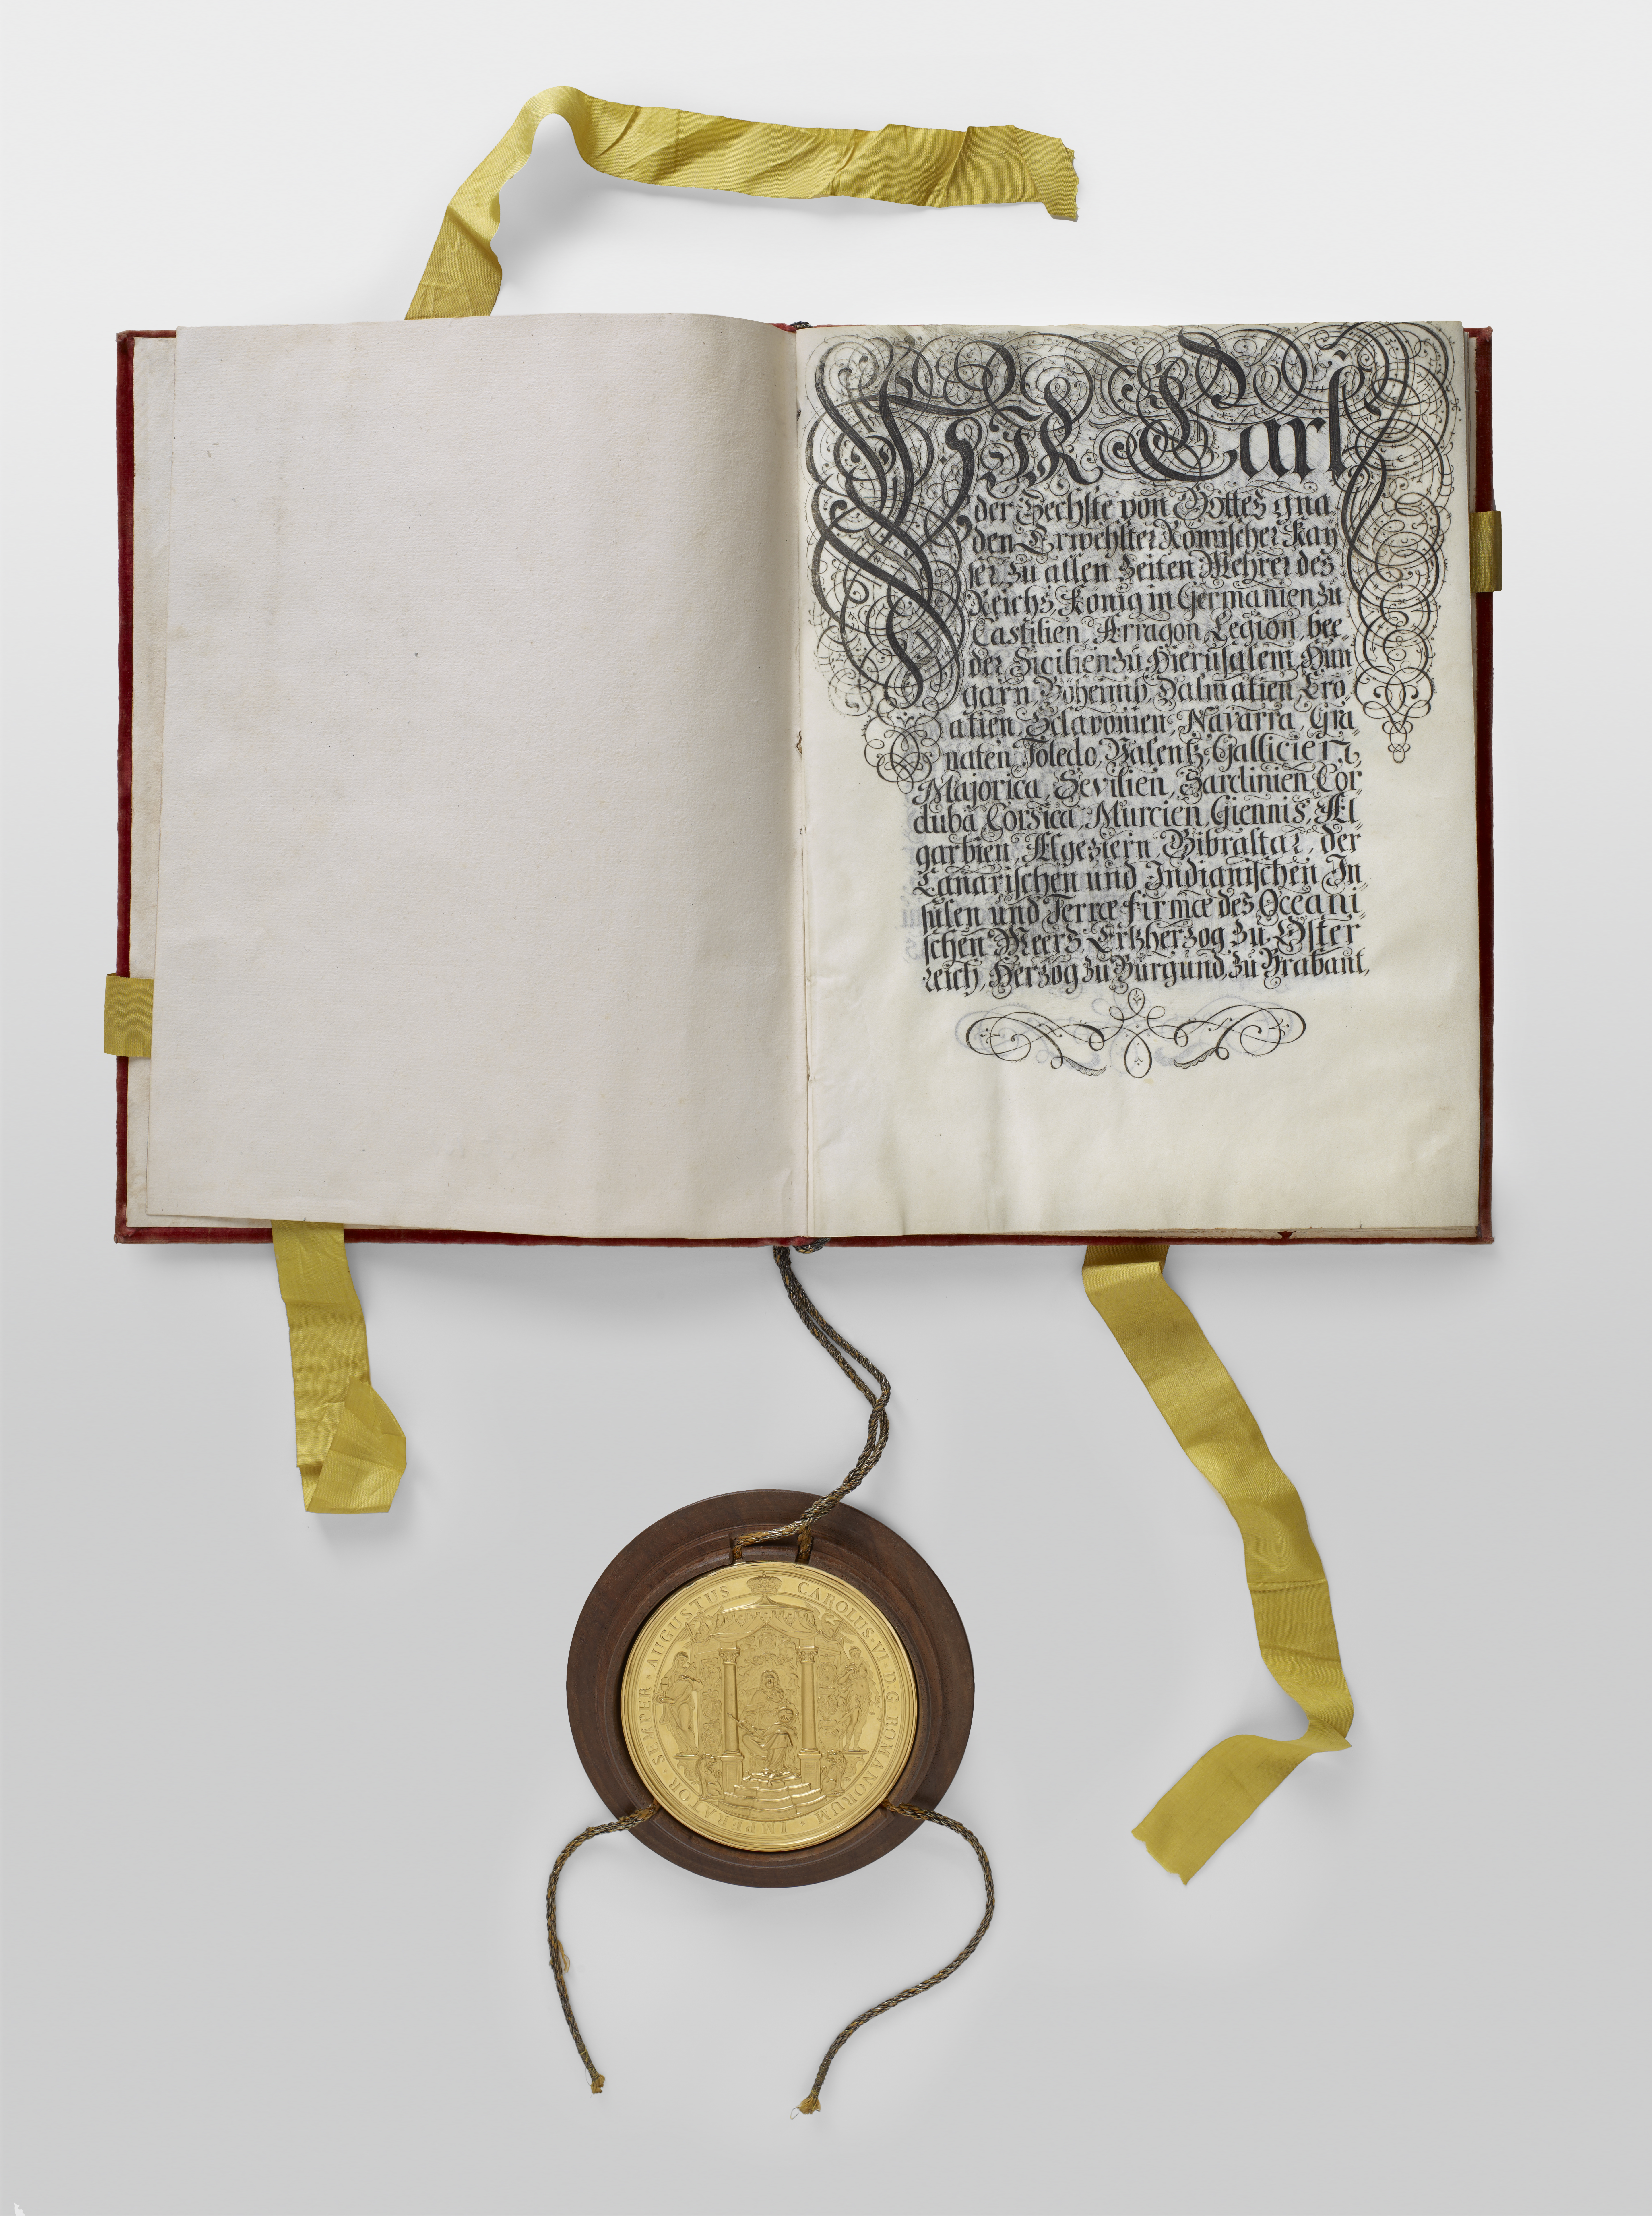 WIR Carl
der Sechste von Gottes gna
den Erwehlter Römischer Kay
ser, zu allen Zeiten Mehrer des
Reichs, König in Germanien, zu
Castilien, Arragon, Legion, bee-
der Sicilien, zu Hierusalem, Hun
garn, Böheimb, Dalmatien, Cro
atien, Sclavonien, Navarra, Gra
naten, Toledo, Valentz, Gallicien,
Majorica, Sevilien, Sardinien, Cor-
duba, Corsica, Murcien, Giennis, Al-
garbien, Algeziern, Gibraltar, der
Canarischen und Indianischen In
sulen und Terræ firmæ des Oceani-
schen Meers, Ertzherzog zu Öster
reich, Herzog zu Burgund, zu Brabant,
CAROLUS·VI·D·G·ROMANORUM·IMPERATOR·SEMPER·AUGUSTUS